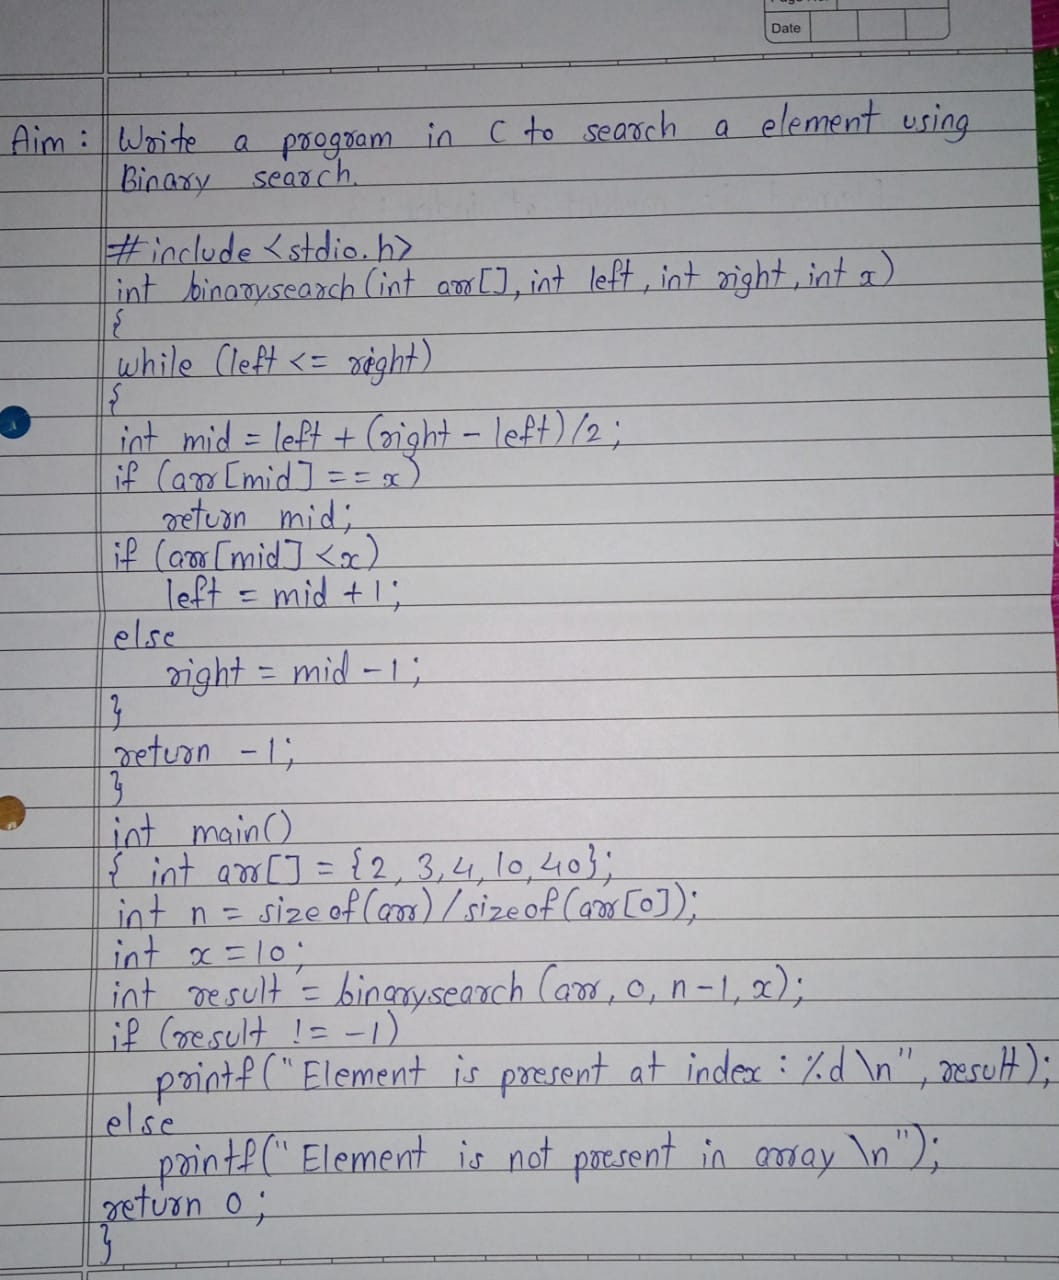 Date
Aim : Write a program in C to search a element using
Binary search.
#include <stdio.h>
int binarysearch (int arr[], int left, int right, int x)
{
while (left <= right)
{
int mid = left + (right - left)/2;
if (arr[mid] == x)
return mid;
if (arr[mid] <x)
left = mid +1;
else
right = mid -1;
}
return -1;
}
int main()
{ int arr[] = {2, 3, 4, 10, 40};
int n = sizeof(arr)/sizeof(arr[0]);
int x = 10;
int result = binarysearch (arr, 0, n-1, x);
if (result != -1)
printf("Element is present at index : %d \n", result);
else
printf("Element is not present in array \n");
return 0;
}